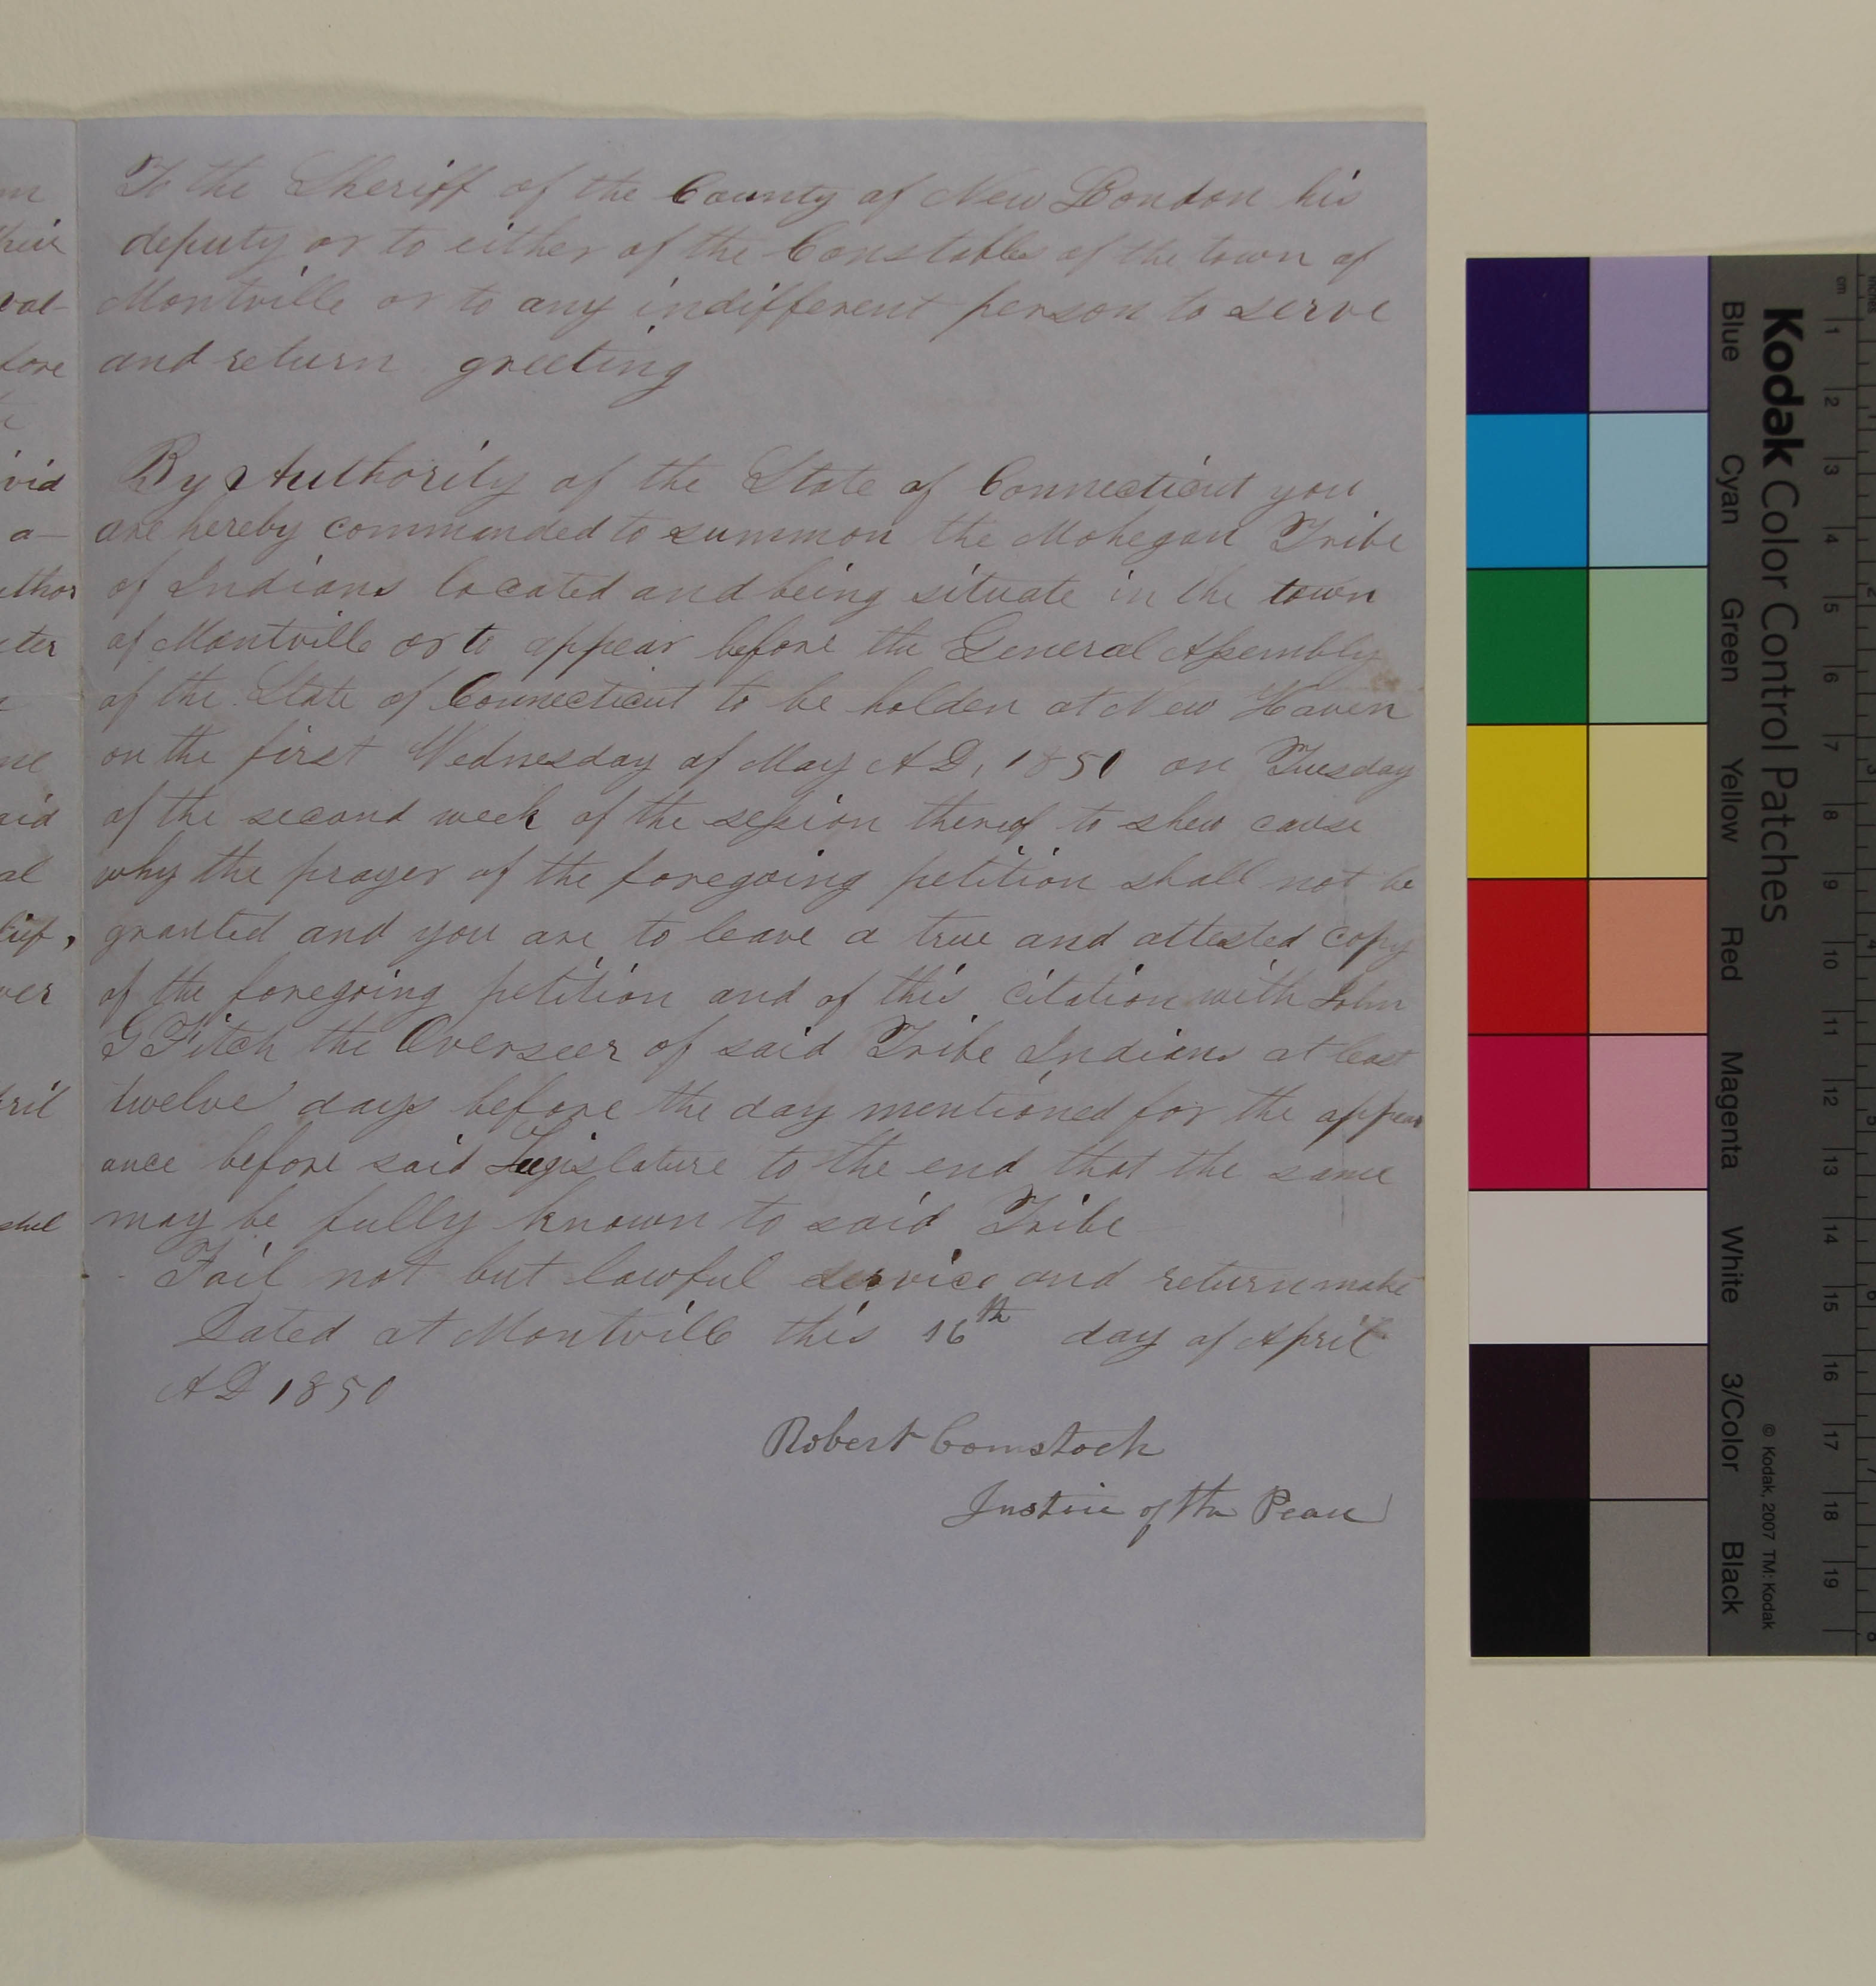 To the Sheriff of the County of New London his
deputy or to either of the Constables of the town of
Montville or to any indifferent person to serve
and return greeting
By Authority of the State of Connecticut you
are hereby commanded to summon the Mohegan Tribe
of Indians located and being situate in the town
of Montville or to appear before the General Assembly
of the State of Connecticut to be holden at New Haven
on the first Wednesday of May A D, 1850 on Tuesday
of the second week of the session thereof to shew cause
why the prayer of the foregoing petition shall not be
granted and you are to leave a true and attested copy
of the foregoing petition and of this citation with John
G Fitch the Overseer of said Tribe Indians at least
twelve days before the day mentioned for the appear
ance before said Legislature to the end that the same
may be fully known to said Tribe
Fail not but lawful service and return make
Dated at Montville this 16th day of April
A D 1850
Robert Comstock
Justice of the Peace
vid
a-
aid
al
ver
Kodak Color Control Patches
Blue Cyan Green Yellow Red Magenta White 3/Color Black
© Kodak, 2007 TM: Kodak
cm 1 2 3 4 5 6 7 8 9 10 11 12 13 14 15 16 17 18 19